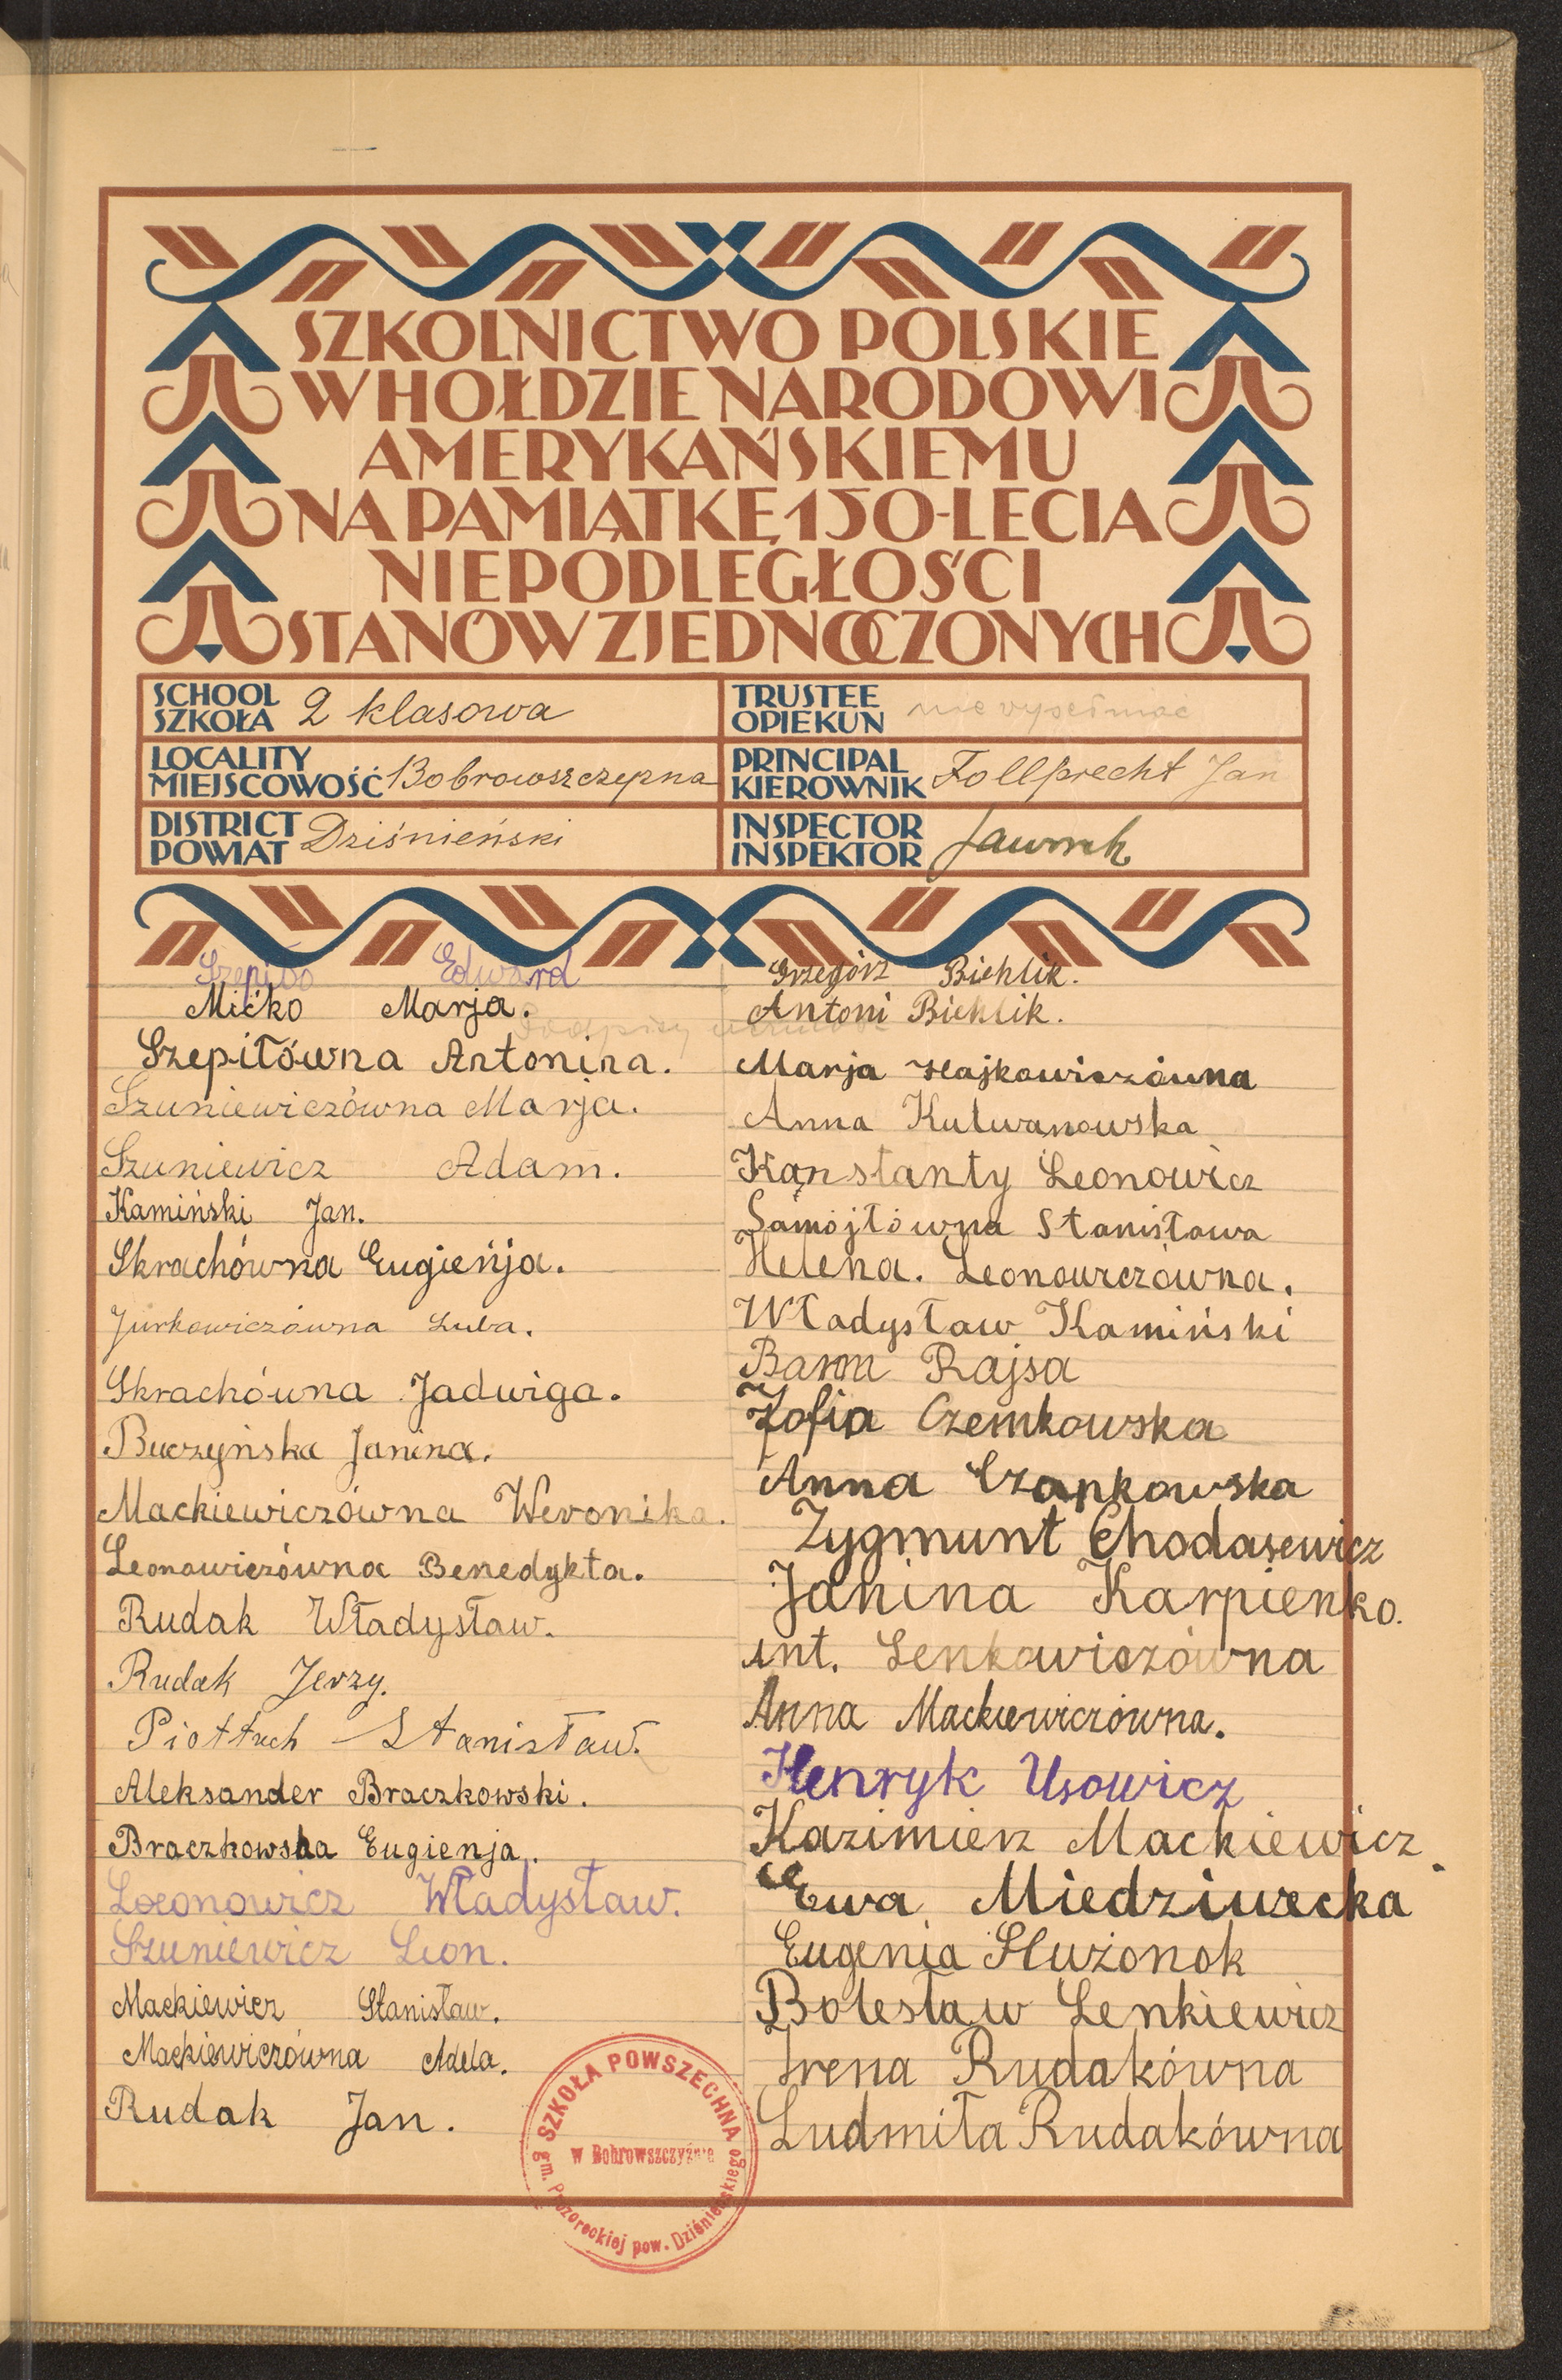 SZKOLNICTWO POLSKIE
W HOŁDZIE NARODOWI
AMERYKAŃSKIEMU
NA PAMIĄTKĘ 150-LECIA
NIEPODLEGŁOŚCI
STANÓW ZJEDNOCZONYCH
SCHOOL
SZKOŁA 2 klasowa
LOCALITY
MIEJSCOWOŚĆ Bobrowszczyzna
DISTRICT
POWIAT Dziśnieński
TRUSTEE
OPIEKUN nie wypełniać
PRINCIPAL
KIEROWNIK Follprecht Jan
INSPECTOR
INSPEKTOR
Edward
Mićko Marja.
Szepiłówna Antonina.
Szuniewiczówna Marja.
Szuniewicz Adam.
Kamiński Jan.
Skrachówna Eugieńja.
Jurkowiczówna Luba.
Skrachówna Jadwiga.
Buczyńska Janina.
Mackiewiczówna Weronika.
Leonowiczówna Benedykta.
Rudak Władysław.
Rudak Jerzy.
Piottuch Stanisław.
Aleksander Braczkowski.
Braczkowska Eugienja.
Leonowicz Władysław.
Szuniewicz Leon.
Mackiewicz Stanisław.
Mackiewiczówna Adela.
Rudak Jan.
Grzegórz Bichlik.
Antoni Bichlik.
Marja Hajkowiczówna
Anna Kulwanowska
Konstanty Leonowicz
Samojłówna Stanisława
Helena. Leonowiczówna.
Władysław Kamiński
Rajsa
Zofia Czemkowska
Anna Czapkowska
Zygmunt Chodasewicz
Janina Karpienko.
Ant. Lenkowiczówna
Anna Mackiewiczówna.
Henryk Usowicz
Kazimierz Mackiewicz.
Ewa Miedziuecka
Eugenia Służonok
Bolesław Lenkiewicz
Irena Rudakówna
Ludmiła Rudakówna
SZKOŁA POWSZECHNA
w Bobrowszczyźnie
gm. Prozoreckiej pow. Dziśnieńskiego